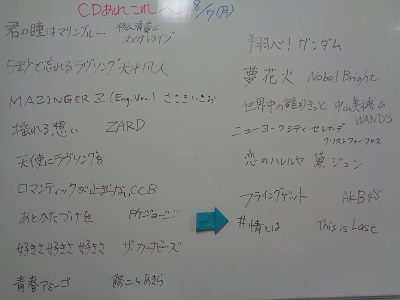 CDあれこれ 8/7(月)
君の瞳はマリンブルー 杉山清貴とオメガトライブ
5秒で忘れるラヴソング 天才凡人
MAZINGER Z (Eng. Ver.) ささきいさお
揺れる想い ZARD
天使にラヴソングを
ロマンティックが止まらない C.C.B
あとかたづけを
好きさ好きさ好きさ ザ・カーナビーツ
青春アミーゴ 修二と彰
翔べ!ガンダム
夢花火 Novel Bright
世界中の誰よりきっと 中山美穂&WANDS
ニューヨークシティセレナーデ
クリストファークロス
恋のハレルヤ 黛ジュン
フライングゲット AKB48
#情とは This is Last